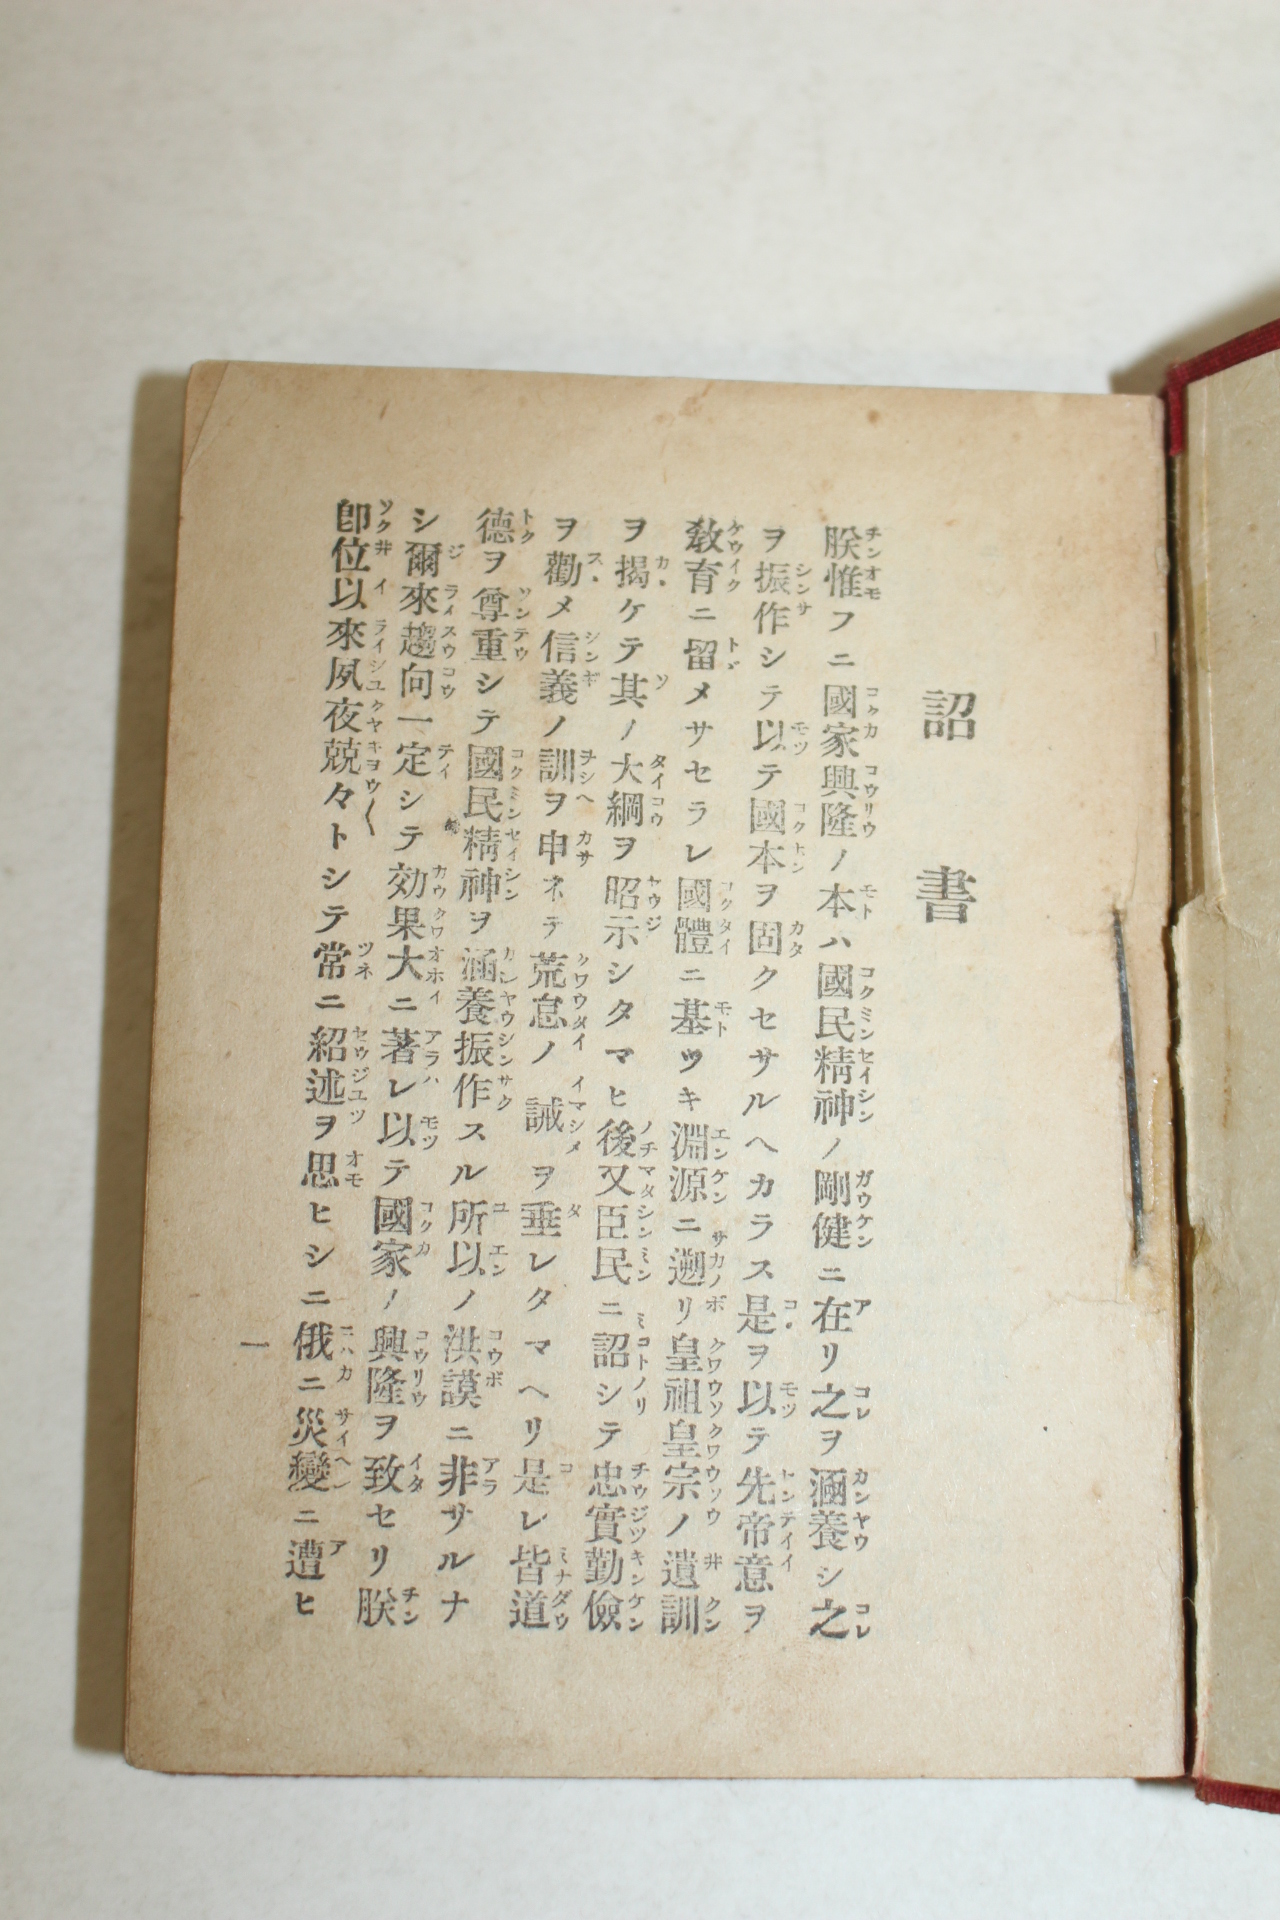 詔書
朕惟フニ國家興隆ノ本ハ國民精神ノ剛健ニ在リ之ヲ涵養シ之
ヲ振作シテ以テ國本ヲ固クセサルヘカラス是ヲ以テ先帝意ヲ
敎育ニ留メサセラレ國體ニ基ツキ淵源ニ遡リ皇祖皇宗ノ遺訓
ヲ揭ケテ其ノ大綱ヲ昭示シタマヒ後又臣民ニ詔シテ忠實勤儉
ヲ勸メ信義ノ訓ヲ申ネテ荒怠ノ誡ヲ垂レタマヘリ是レ皆道
德ヲ尊重シテ國民精神ヲ涵養振作スル所以ノ洪謨ニ非サルナ
シ爾來趨向一定シテ効果大ニ著レ以テ國家ノ興隆ヲ致セリ朕
卽位以來夙夜兢々トシテ常ニ紹述ヲ思ヒシニ俄ニ災變ニ遭ヒ
一